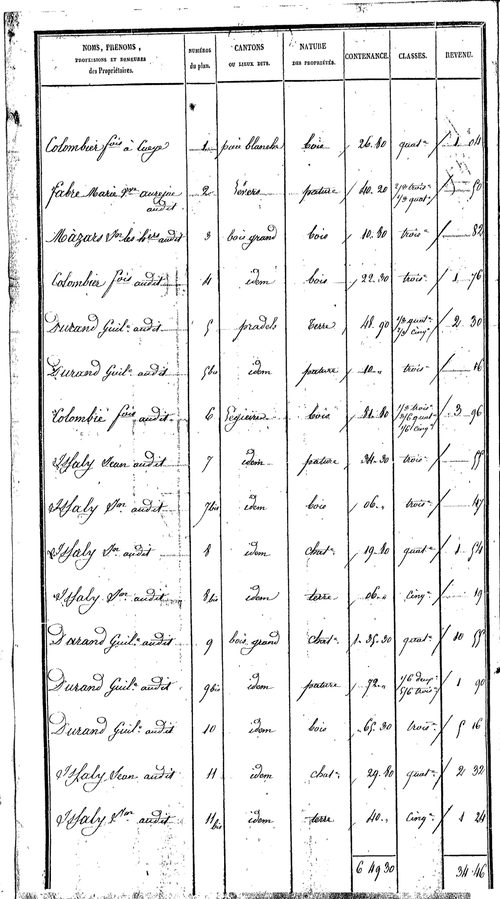 NOMS, PRENOMS, PROFESSIONS ET DEMEURES des Propriétaires. NUMÉROS du plan. CANTONS OU LIEUX DITS. NATURE DES PROPRIÉTÉS. CONTENANCE. CLASSES. REVENU.
Colombier fois à 1 blanche bois 26.80 quat 1 04
Fabre Marie audit 2 pature 40.20 2/3 trois 1/3 quat 50
Mazars les hers audit 3 bois grand bois 10.80 trois 82
Colombier fois audit 4 idem bois 22.30 trois 1 76
Durand Guil. audit 5 pradels terre 48.90 1/3 quat 2/3 cinq 2 30
Durand Guil. audit 5bis idem pature 10 trois 16
Colombié fois audit 6 bois 81.80 1/3 trois 3/6 quat 1/6 cinq 3 96
Issaly Jean audit 7 idem pature 34.30 trois 55
Issaly audit 7bis idem bois 06 trois 47
Issaly audit 8 idem chat 19.80 quat 1 54
Issaly audit 8bis idem terre 06 cinq 19
Durand Guil. audit 9 bois grand chat 1.35.30 quat 10 55
Durand Guil. audit 9bis idem pature 72 1/6 deux 5/6 trois 1 90
Durand Guil. audit 10 idem bois 65.30 trois 5 16
Issaly Jean audit 11 idem chat 29.80 quat 2 32
Issaly audit 11bis idem terre 40 cinq 1 24
6 49 30 34.46